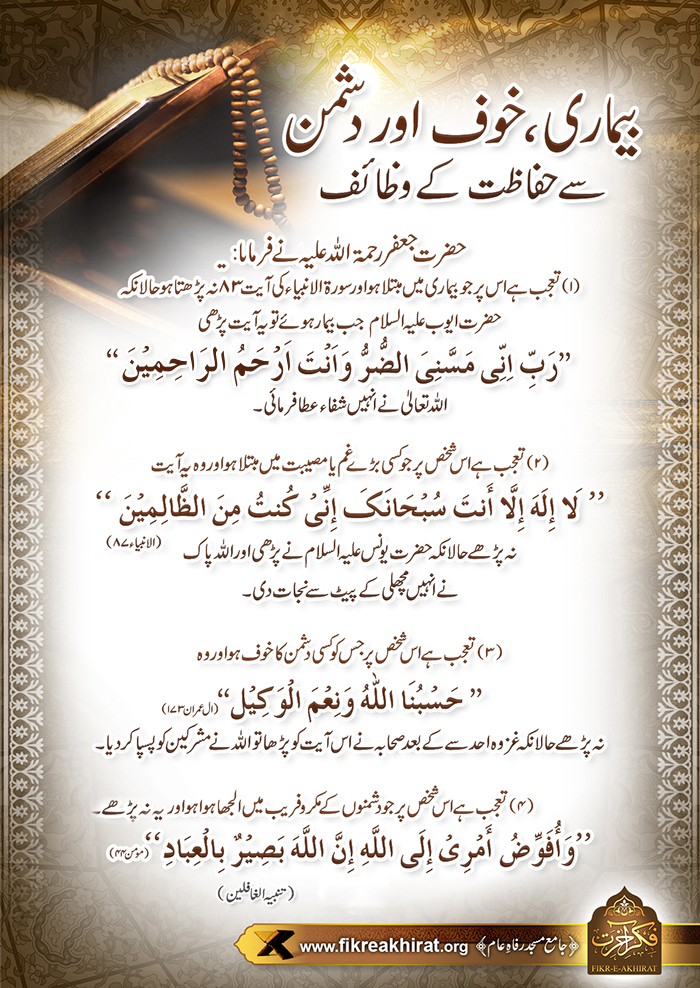 بیماری، خوف اور دشمن
سے حفاظت کے وظائف
حضرت جعفر رحمۃ اللہ علیہ نے فرمایا:
(۱) تعجب ہے اس پر جو بیماری میں مبتلا ہو اور سورۃ الانبیاء کی آیت ۸۳ نہ پڑھتا ہو حالانکہ
حضرت ایوب علیہ السلام جب بیمار ہوئے تو یہ آیت پڑھی
”رَبِّ اِنِّی مَسَّنِیَ الضُّرُّ وَاَنْتَ اَرْحَمُ الرَاحِمِیْنَ“
اللہ تعالیٰ نے انہیں شفاء عطا فرمائی۔
(۲) تعجب ہے اس شخص پر جو کسی بڑے غم یا مصیبت میں مبتلا ہو اور وہ یہ آیت
”لَا إِلَهَ إِلَّا أَنتَ سُبْحَانَکَ إِنِّیْ کُنتُ مِنَ الظَّالِمِیْنَ“
نہ پڑھے حالانکہ حضرت یونس علیہ السلام نے پڑھی اور اللہ پاک (الانبیاء ۸۷)
نے انہیں مچھلی کے پیٹ سے نجات دی۔
(۳) تعجب ہے اس شخص پر جس کو کسی دشمن کا خوف ہو اور وہ
”حَسْبُنَا اللّٰہُ وَنِعْمَ الْوَکِیْل“ (ال عمران ۱۷۳)
نہ پڑھے حالانکہ غزوہ احد سے کے بعد صحابہ نے اس آیت کو پڑھا تو اللہ نے مشرکین کو پسپا کر دیا۔
(۴) تعجب ہے اس شخص پر جو دشمنوں کے مکر و فریب میں الجھا ہوا ہو اور یہ نہ پڑھے۔
”وَأُفَوِّضُ أَمْرِیْ إِلَی اللَّهِ إِنَّ اللَّهَ بَصِیْرٌ بِالْعِبَادِ“ (مؤمن ۴۴)
(تنبیہ الغافلین)
فکر آخرت
FIKR-E-AKHIRAT
﴿جامع مسجد رفاہِ عام﴾ www.fikreakhirat.org